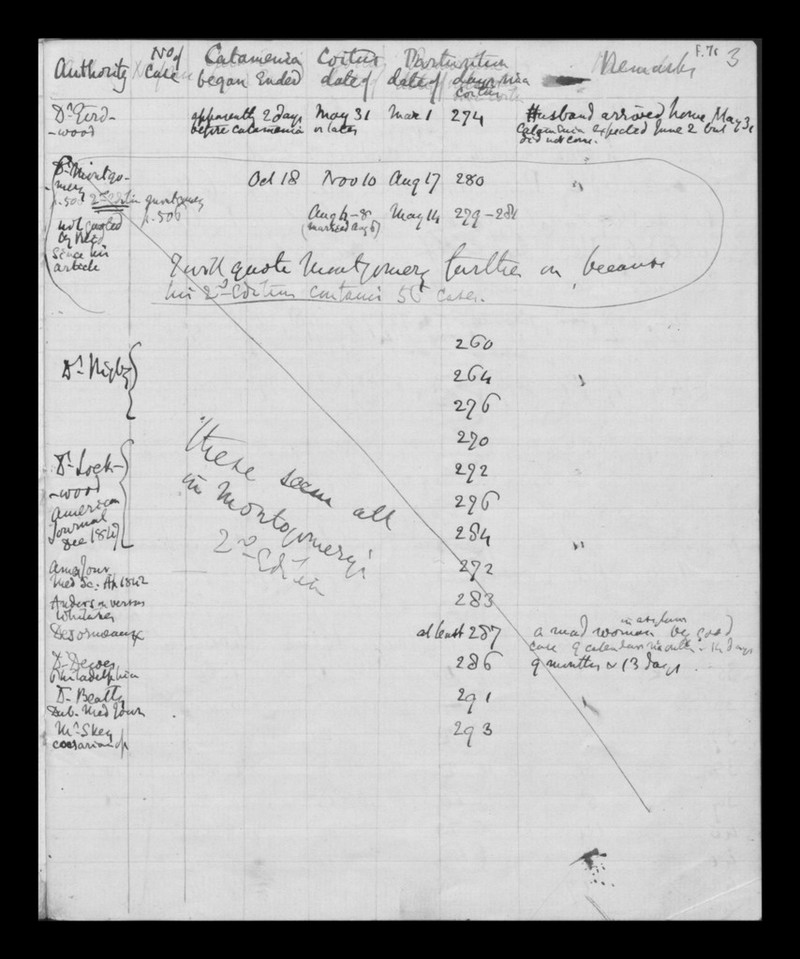 F.71 3
Authority No of Case Catamenia began Ended Coitus date of Parturition date of days via coitus Remarks
Dr Gird-
-wood apparently 2 days before catamenia May 31 or later Mar 1 274 Husband arrived home May 31
Catamenia expected June 2 but
did not come.
Dr Montgo-
mery Oct 18 Nov 10 Aug 17 280 "
p. 506 2nd Edtin
p. 506
not quoted Aug 6-8 May 14 279-281
by Reid (married Aug 6)
since his
article I will quote Montgomery further on, because
his 2nd Edtion contains 56 cases.
260
Dr Rigby 264 "
276
270
Dr Lock- 292
-wood 296
American
Journal
Dec 1847 284 "
These seem all
in Montgomery's
2nd Edtin
Amer Jour 272
Med Sc: Ap 1842
Anderson versus 283
Whitaker
Desormeaux at least 287 a mad woman in asylum
case 9 calendar months - 14 days
Dr Dewees 286 9 months & 13 days
Philadelphia
Dr Beatty 291 "
Dub. Med Journ
Mr Skey 293
cesarian op